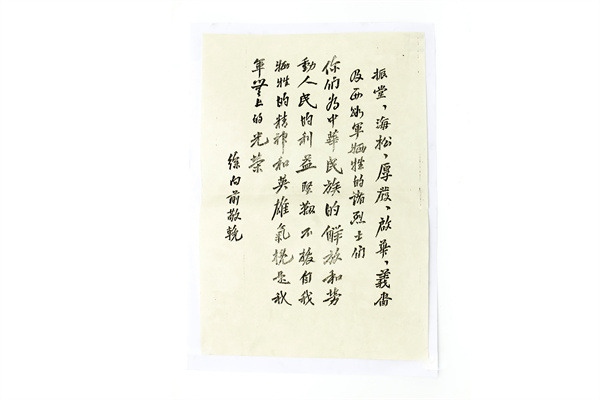 振堂、海松、厚發、啟華、義齋
及西路軍犧牲的諸烈士们
你们为中華民族的解放和劳
動人民的利益堅艱不拔自我
犧牲的精神和英雄氣概是我
軍無上的光榮
徐向前敬輓